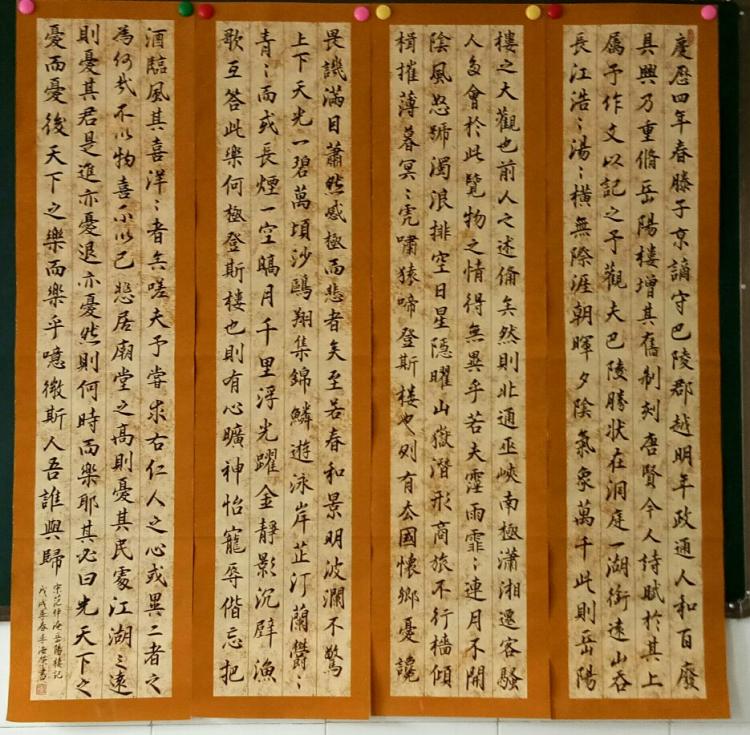 慶曆四年春滕子京謫守巴陵郡越明年政通人和百廢
具興乃重脩岳陽樓增其舊制刻唐賢今人詩賦於其上
屬予作文以記之予觀夫巴陵勝狀在洞庭一湖銜遠山吞
長江浩〻湯〻橫無際涯朝暉夕陰氣象萬千此則岳陽
樓之大觀也前人之述備矣然則北通巫峽南極瀟湘遷客騷
人多會於此覽物之情得無異乎若夫霪雨霏〻連月不開
陰風怒號濁浪排空日星隱曜山嶽潛形商旅不行檣傾
楫摧薄暮冥〻虎嘯猿啼登斯樓也則有去國懷鄉憂讒
畏譏滿目蕭然感極而悲者矣至若春和景明波瀾不驚
上下天光一碧萬頃沙鷗翔集錦鱗遊泳岸芷汀蘭鬱〻
青〻而或長煙一空皜月千里浮光躍金靜影沉璧漁
歌互答此樂何極登斯樓也則有心曠神怡寵辱偕忘把
酒臨風其喜洋〻者矣嗟夫予嘗求古仁人之心或異二者之
為何哉不以物喜不以己悲居廟堂之高則憂其民處江湖之遠
則憂其君是進亦憂退亦憂然則何時而樂耶其必曰先天下之
憂而憂後天下之樂而樂乎噫微斯人吾誰與歸
宋范仲淹岳陽樓記
戊戌年春